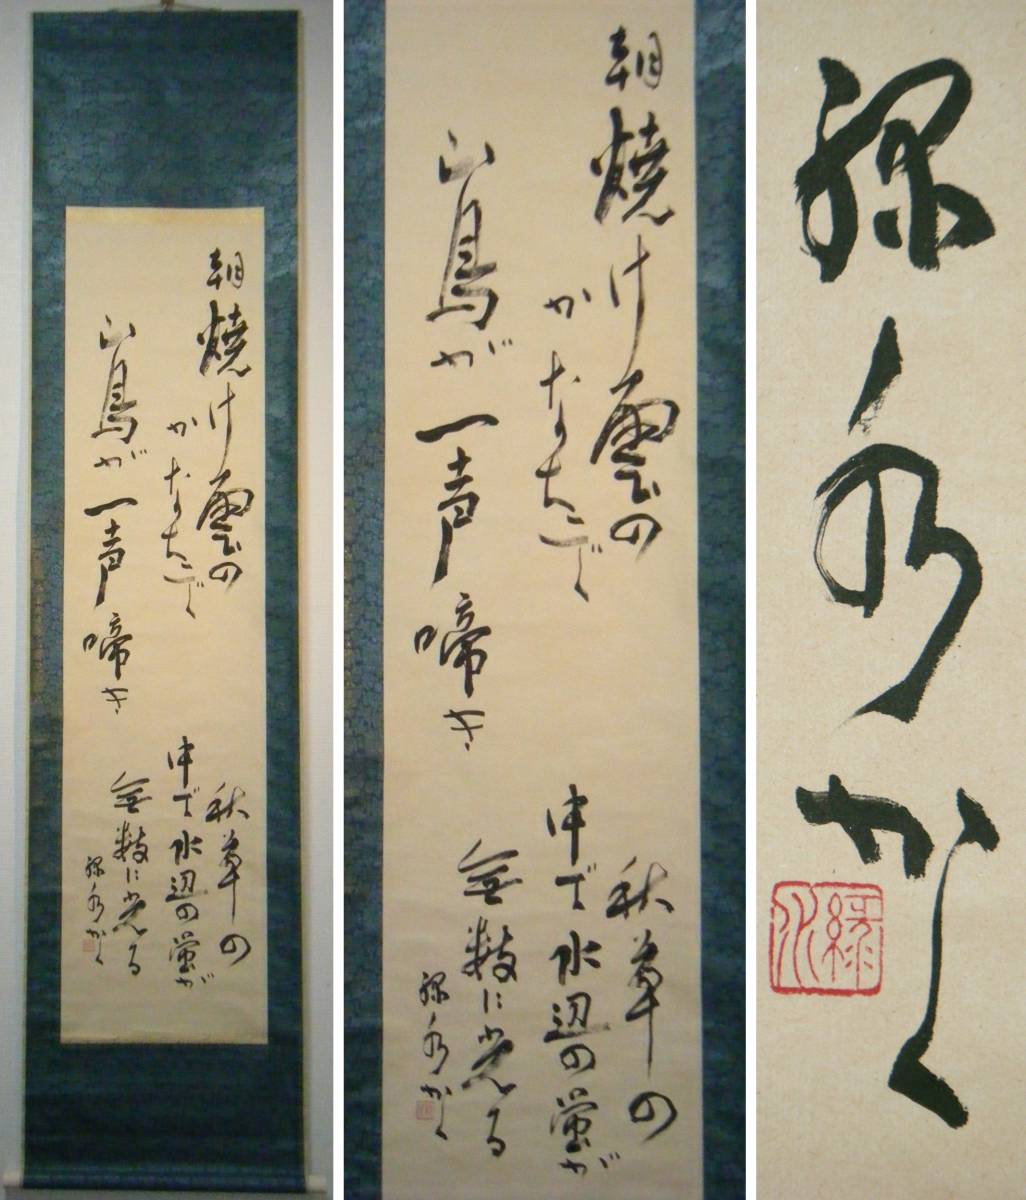 朝焼け雲の
かなたで
山鳥が一声啼き
秋草の
中で水辺の蛍が
無数に光る
緑水かく
朝焼け雲の
かなたで
山鳥が一声啼き
秋草の
中で水辺の蛍が
無数に光る
緑水かく
緑水かく
緑水